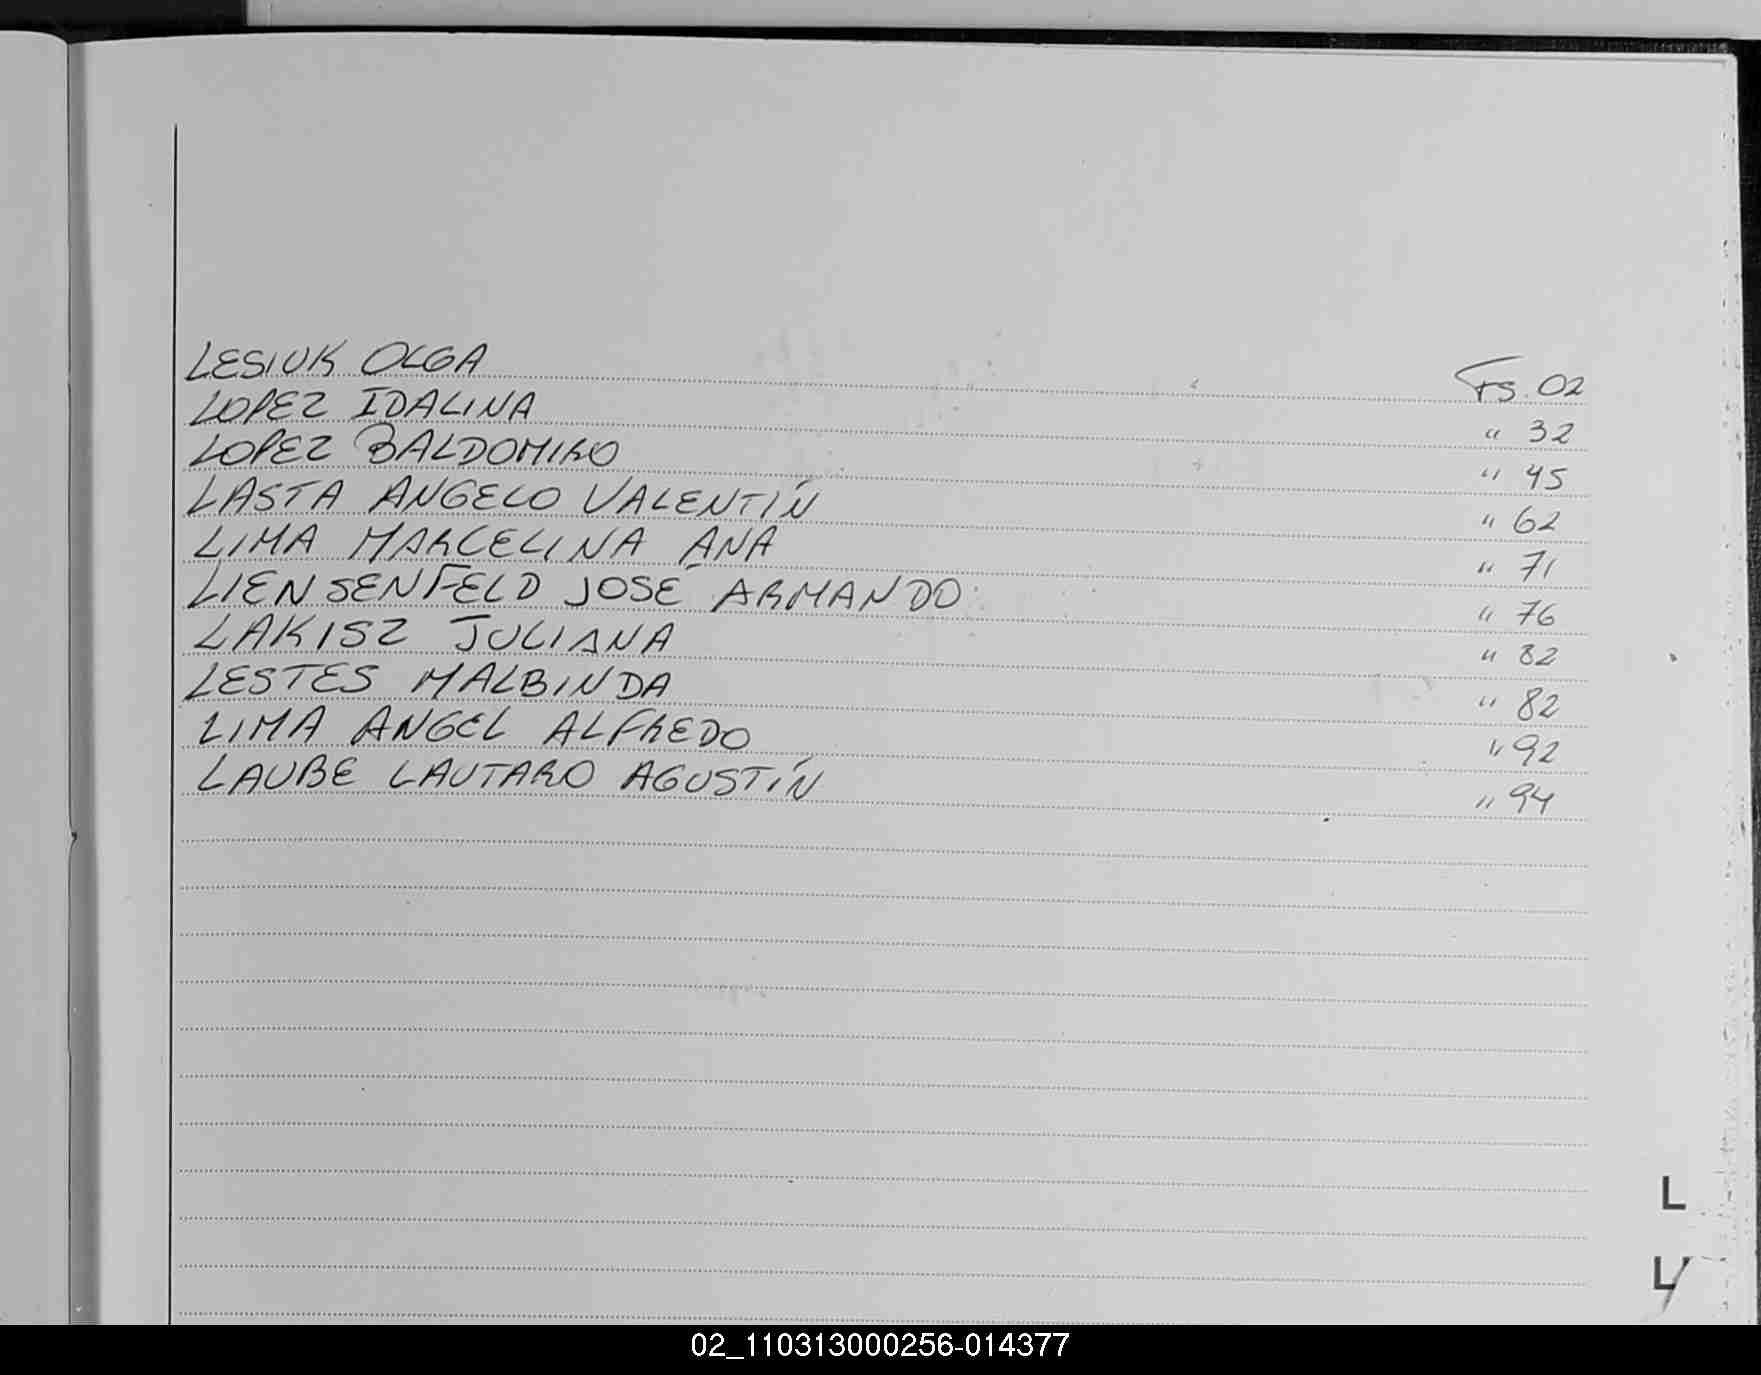 LESIUK OLGA Fs. 02
LOPEZ IDALINA " 32
LOPEZ BALDOMIRO " 45
LASTA ANGELO VALENTÍN " 62
LIMA MARCELINA ANA " 71
LIENSENFELD JOSÉ ARMANDO " 76
LAKISZ JULIANA " 82
LESTES MALBINDA " 82
LIMA ANGEL ALFREDO " 92
LAUBE LAUTARO AGUSTÍN " 94
L
02_110313000256-014377